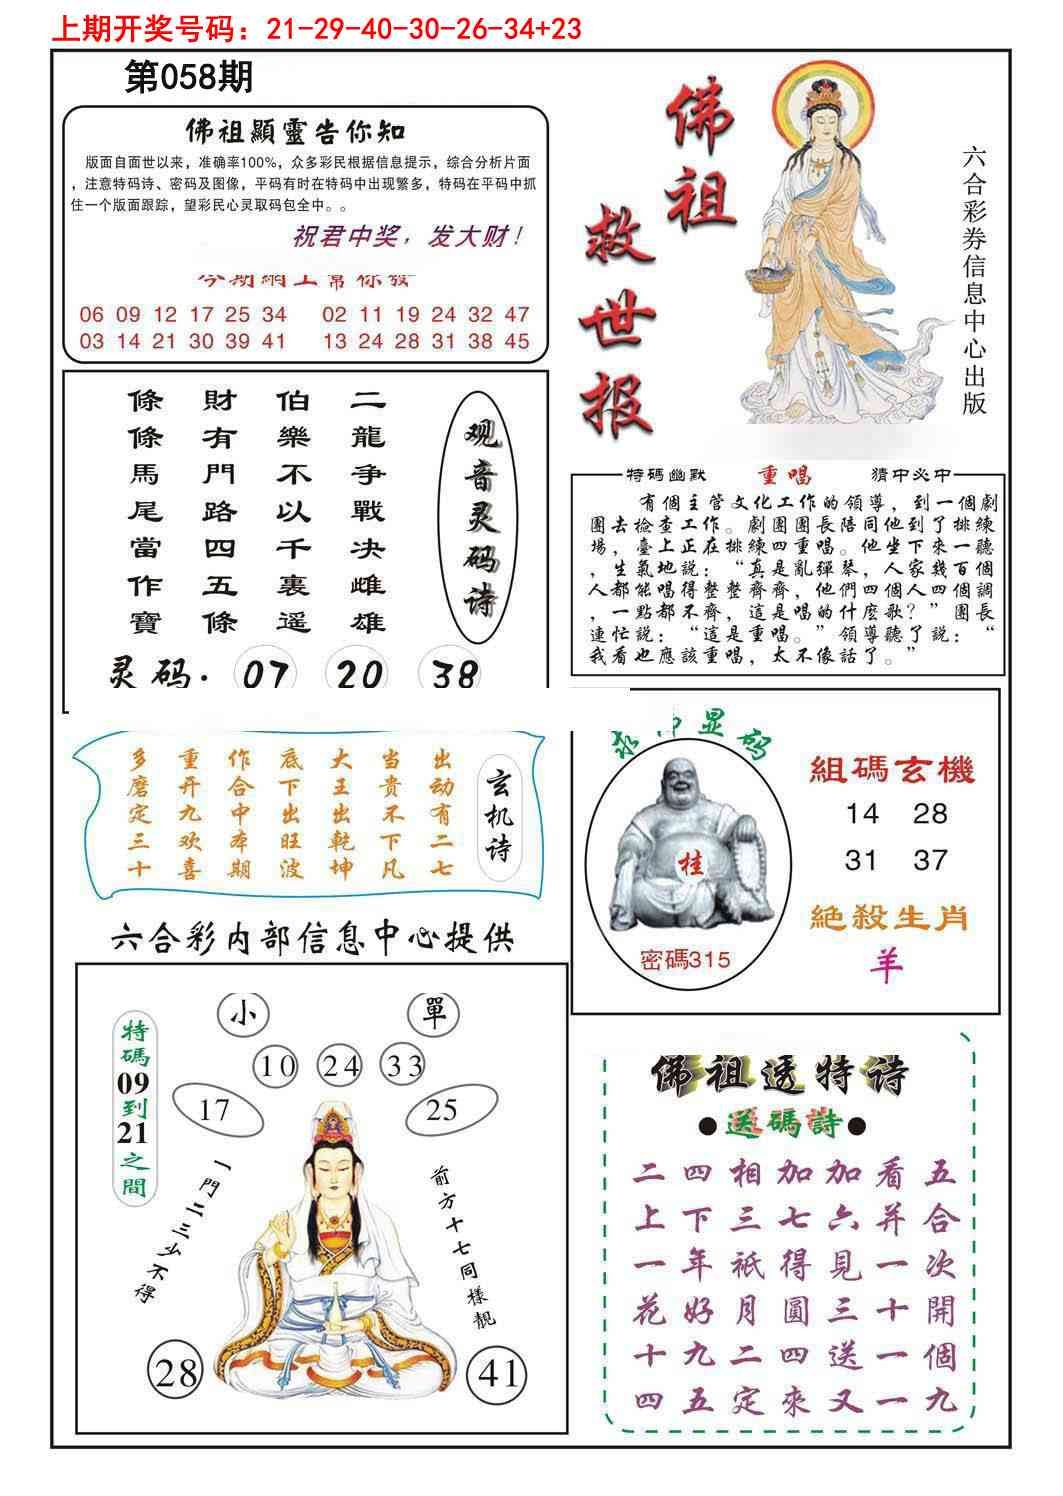 上期开奖号码：21-29-40-30-26-34+23
第058期
佛祖顯靈告你知
版面自面世以来，准确率100%，众多彩民根据信息提示，综合分析片面
，注意特码诗、密码及图像，平码有时在特码中出现繁多，特码在平码中抓
住一个版面跟踪，望彩民心灵取码包全中。。
祝君中奖，发大财！
今期網上幫你發
06 09 12 17 25 34 02 11 19 24 32 47
03 14 21 30 39 41 13 24 28 31 38 45
佛祖
救世报
六合彩券信息中心出版
观音灵码诗
二龍争戰决雌雄
伯樂不以千裏遥
財有門路四五條
條條馬尾當作寶
灵码. 07 20 38
特碼幽默 重唱 猜中必中
有個主管文化工作的領導，到一個劇
團去檢查工作。劇團團長陪同他到了排練
場，臺上正在排練四重唱。他坐下來一聽
，生氣地説：“真是亂彈琴，人家幾百個
人都能唱得整整齊齊，他們四個人四個調
，一點都不齊，這是唱的什麽歌？”團長
連忙説：“這是重唱。”領導聽了説：“
我看也應該重唱，太不像話了。”
玄机诗
出动有二七
当贵不下凡
大王出乾坤
底下出旺波
作合中本期
重开九欢喜
多磨定三十
显码
桂
密碼315
組碼玄機
14 28
31 37
絶殺生肖
羊
六合彩内部信息中心提供
特碼09到21之間
小 單
10 24 33
17 25
一門二三少不得
前方十七同樣靚
28 41
佛祖透特诗
●送碼詩●
五合次開個九
看并一十一一
加六見三送又
加七得圓四來
相三衹月二定
四下年好九五
二上一花十四